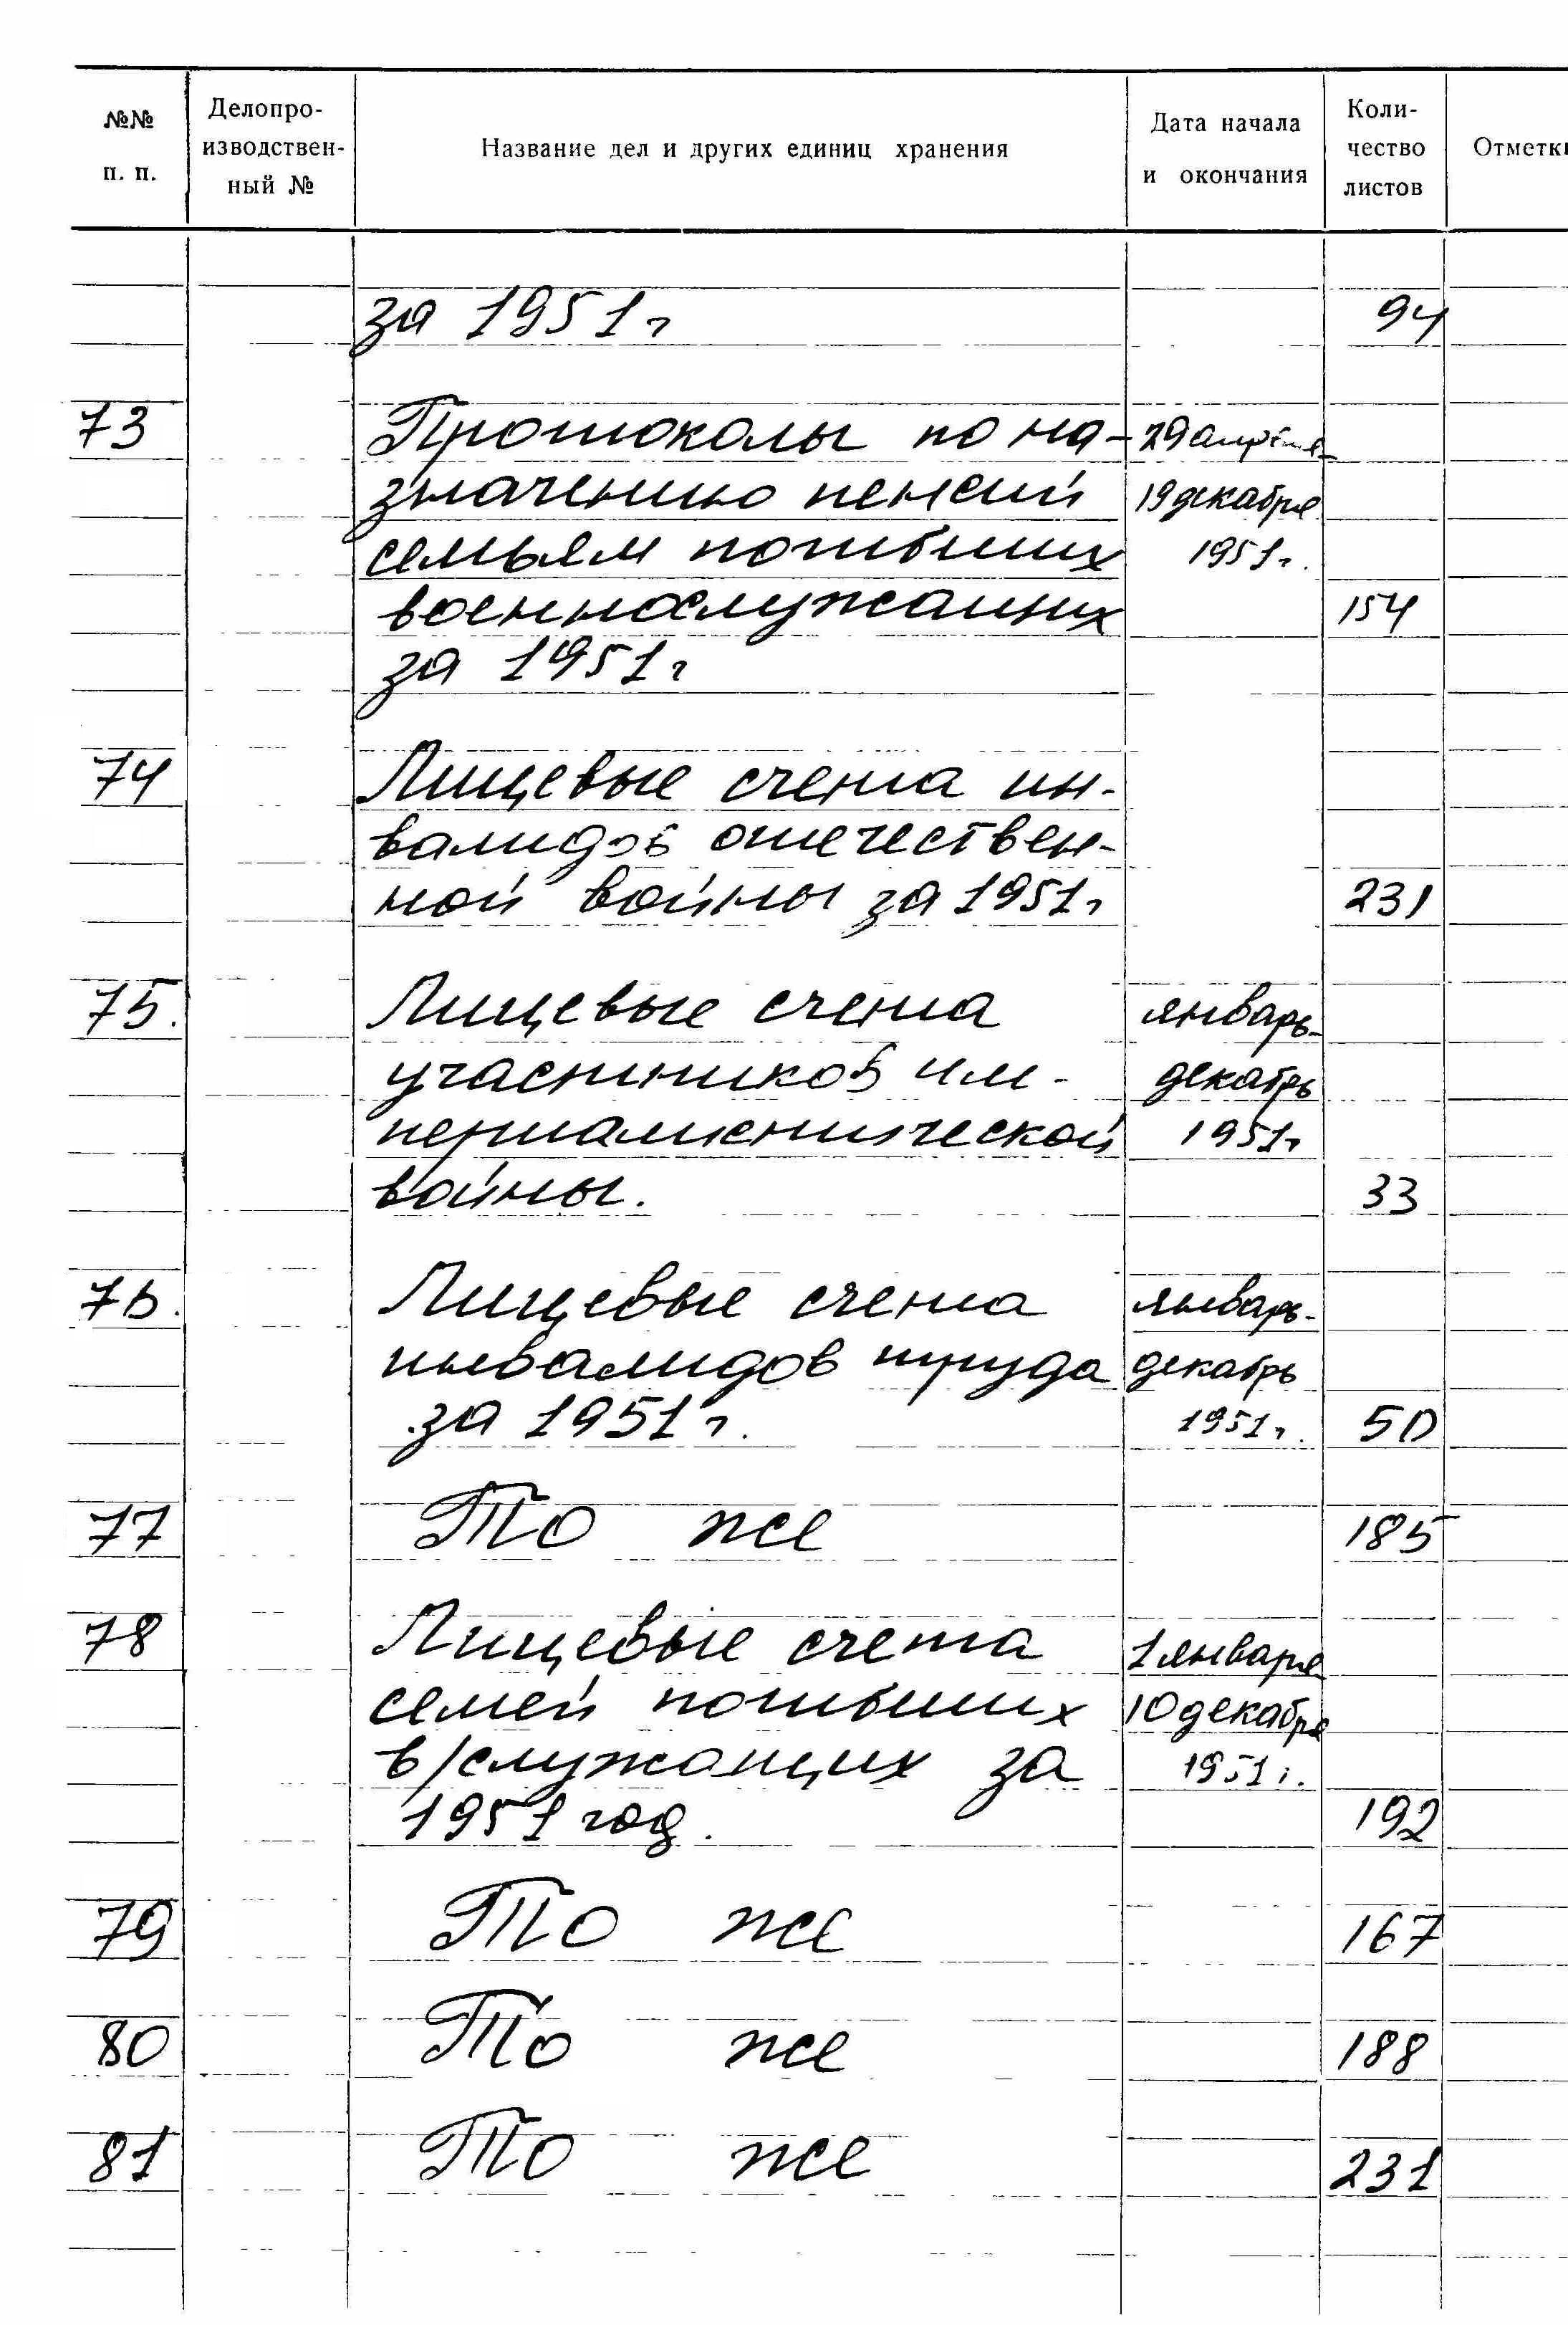 №№ п. п. Делопро-изводствен-ный № Название дел и других единиц хранения Дата начала и окончания Коли-чество листов Отметк
за 1951 г 94
73 Протоколы по на- 29 апреля-
значению пенсий 19 декабря
семьям погибших 1951 г.
военнослужащих 154
за 1951 г
74 Лицевые счета ин-
валидов отечествен-
ной войны за 1951 г 231
75. Лицевые счета январь-
участников им- декабрь
периалистической 1951 г
войны. 33
76. Лицевые счета январь-
инвалидов труда декабрь
за 1951 г. 1951 г. 50
77 То же 185
78 Лицевые счета 1 января-
семей погибших 10 декабря
в/служащих за 1951 г.
1951 год. 192
79 То же 167
80 То же 188
81 То же 231